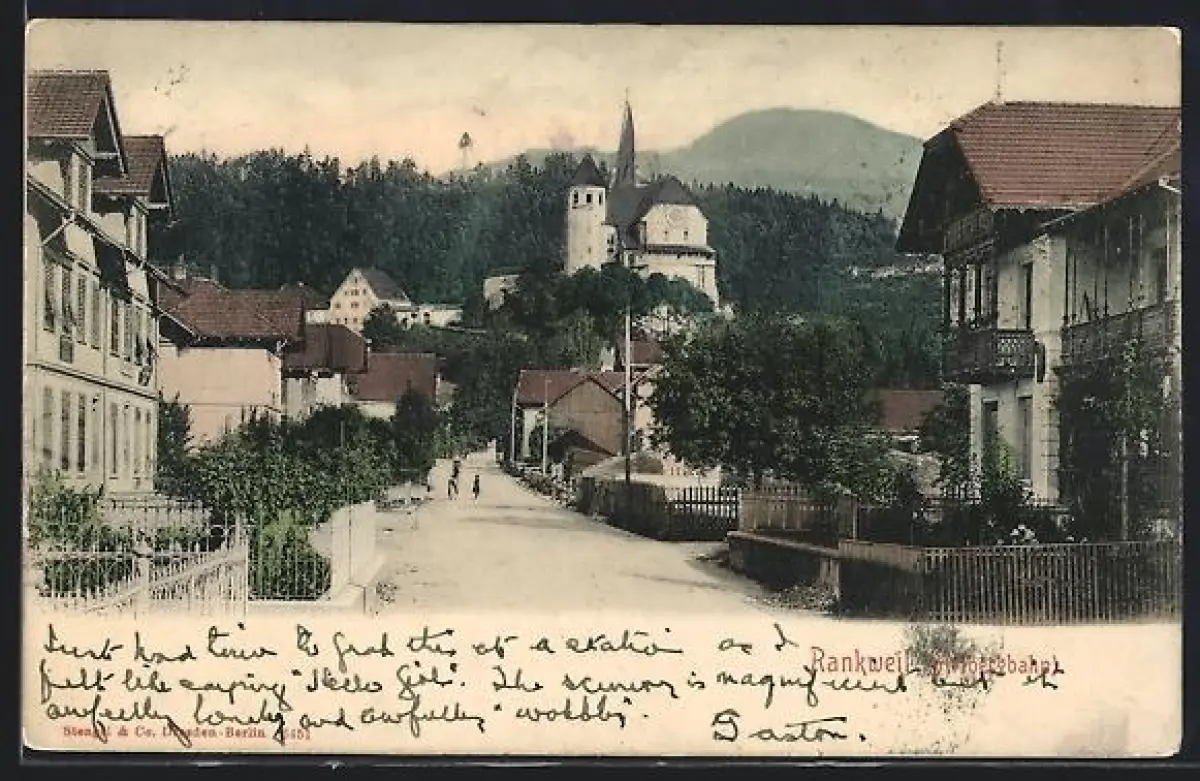 Just had time to grab this at a station as I
Rankweil (Arlbergbahn).
felt like saying "Hello Girl". The scenery is magnificent but it
awfully lonely and awfully "wobbly".
Gaston.
Stengel & Co. Dresden-Berlin